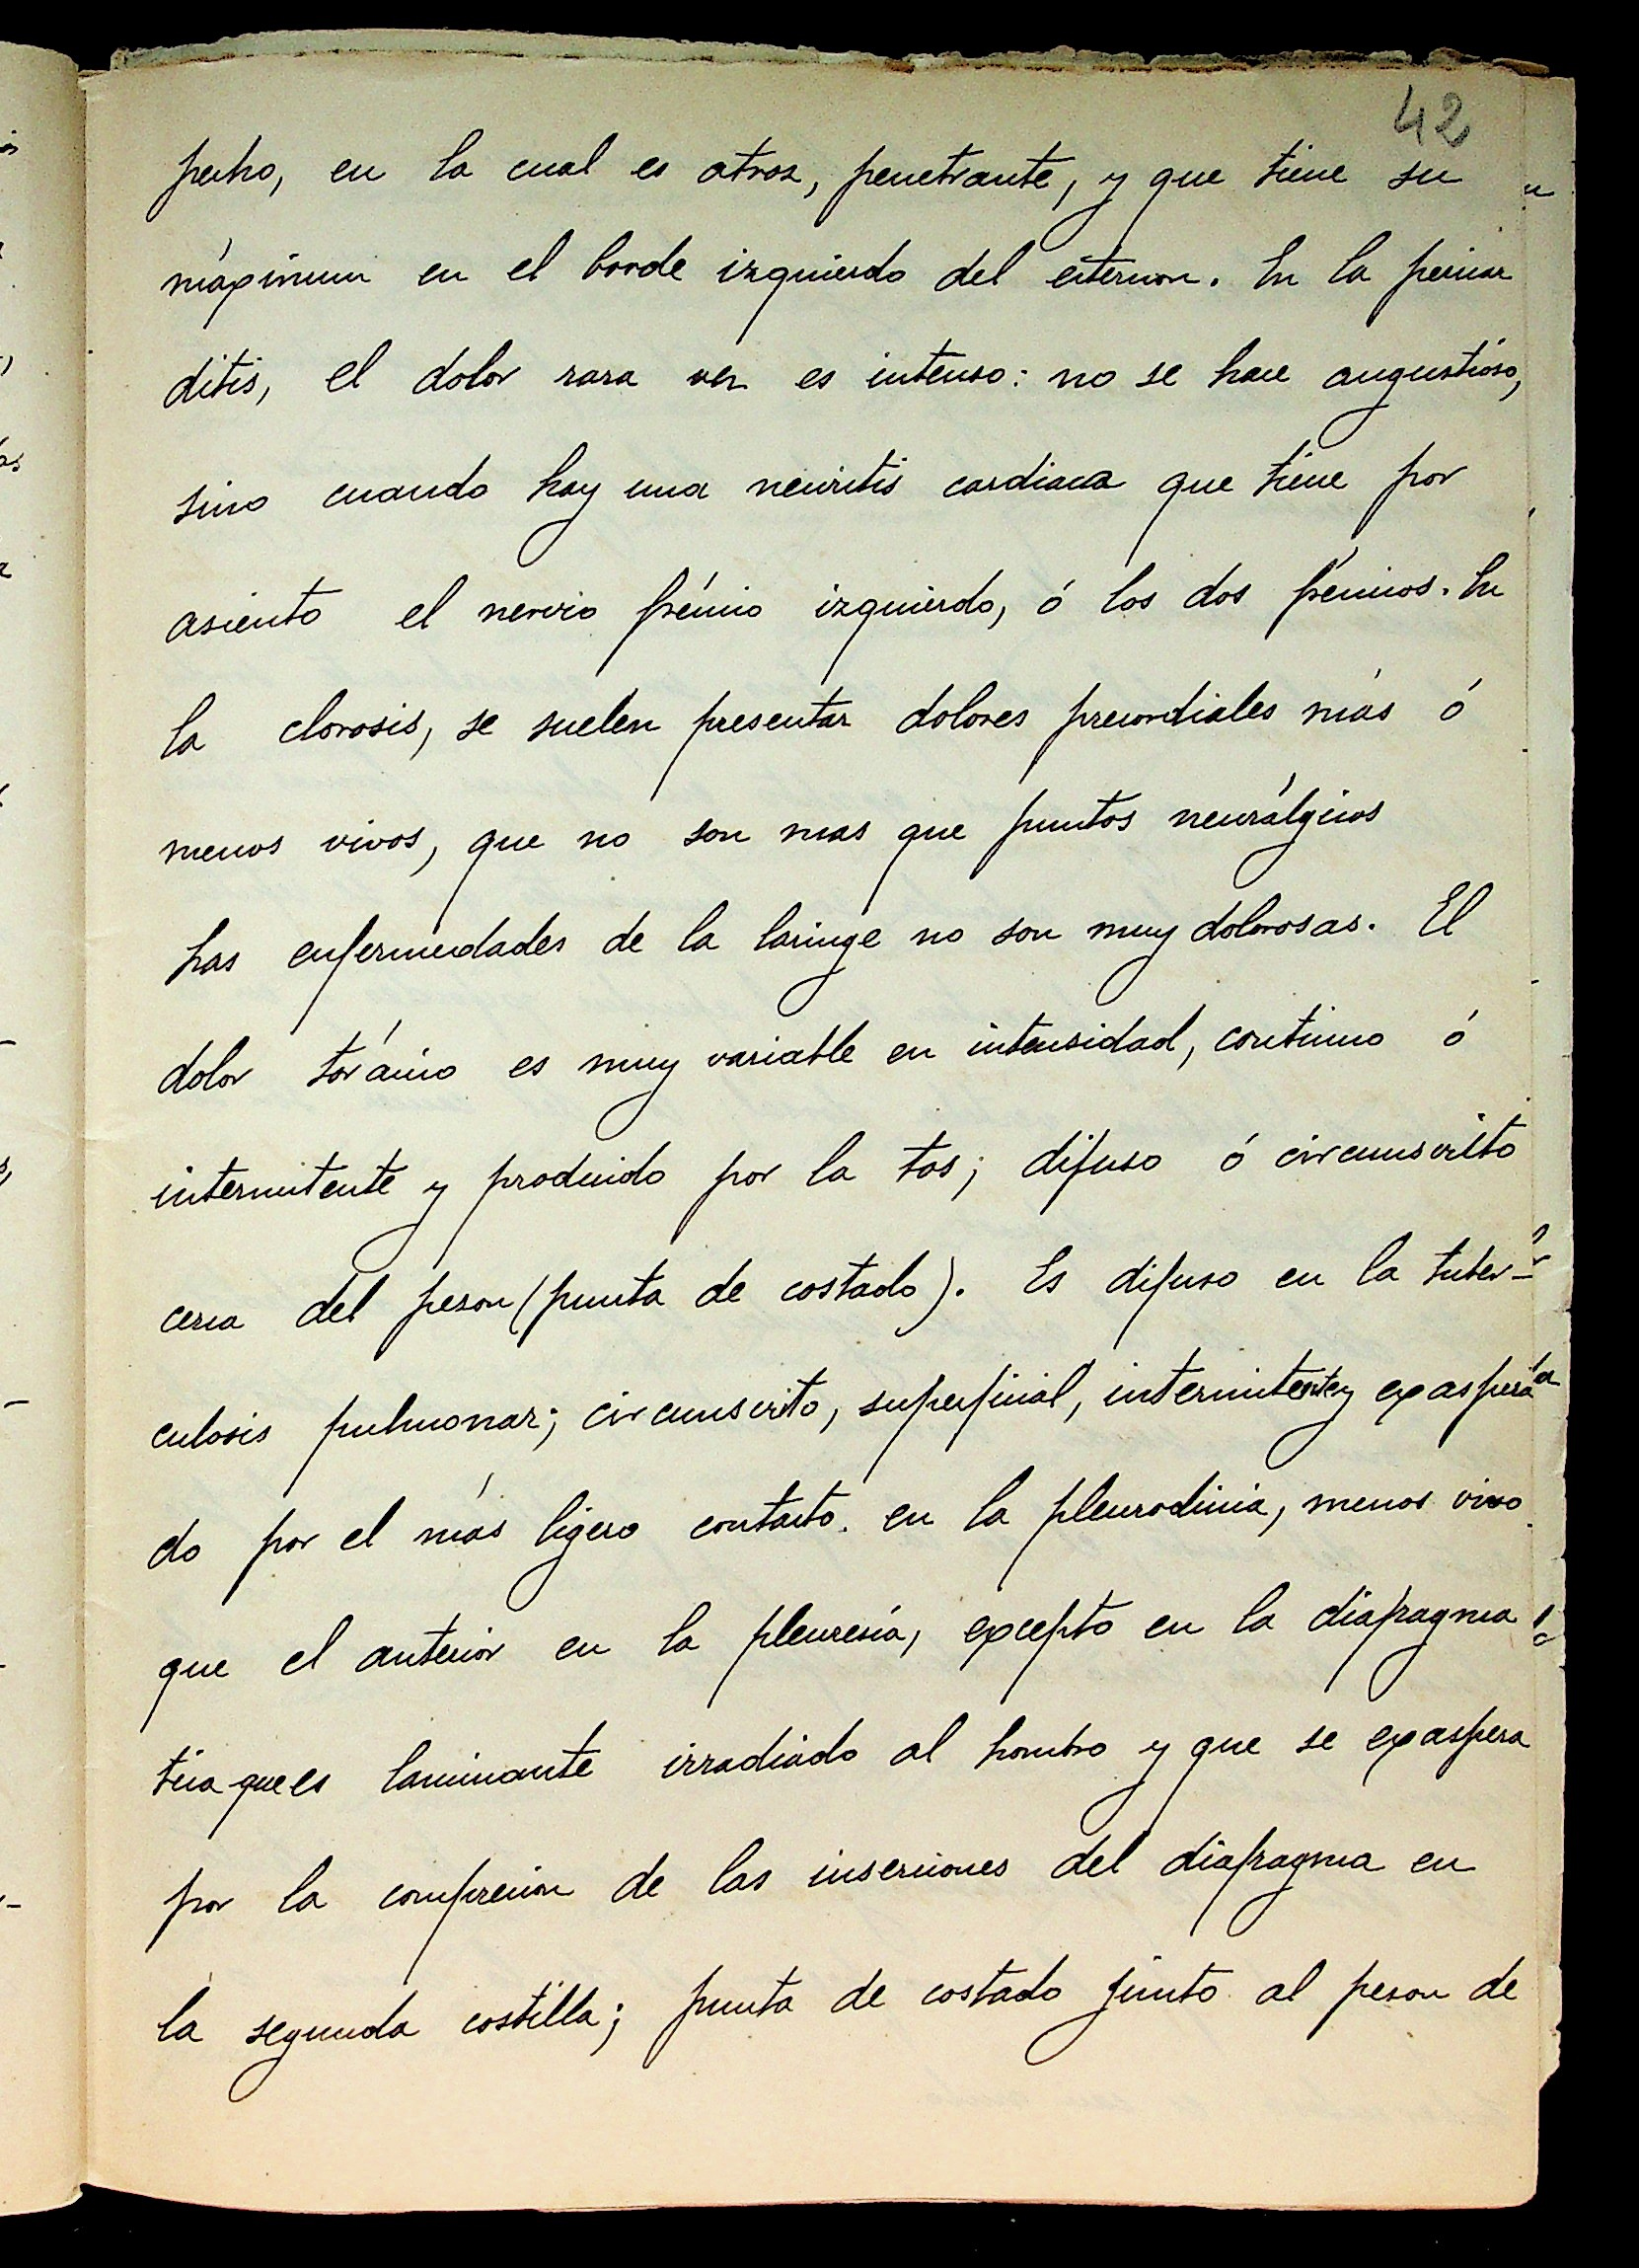 42
pecho, en la cual es atroz, penetrante, y que tiene su
máximum en el borde izquierdo del esternon. En la pericar
ditis, el dolor rara vez es intenso: no se hace angustioso,
sino cuando hay una neuritis cardiaca que tiene por
asiento el nervio frénico izquierdo, ó los dos frénicos. En
la clorosis, se suelen presentar dolores precordiales más ó
menos vivos, que no son mas que puntos neurálgicos
Las enfermedades de la laringe no son muy dolorosas. El
dolor torácico es muy variable en intensidad, continuo ó
intermitente y producido por la tos; difuso ó circunscrito
cerca del pezon (punta de costado). Es difuso en la tuber-
culosis pulmonar; circunscrito, superficial, intermitente y exaspera
do por el más ligero contacto. en la pleurodinia, menos vivo
que el anterior en la pleuresía, excepto en la diafragma
tica que es laminante irradiado al hombro y que se exaspera
por la compresion de las inserciones del diafragma en
la segunda costilla; punta de costado junto al pezon de